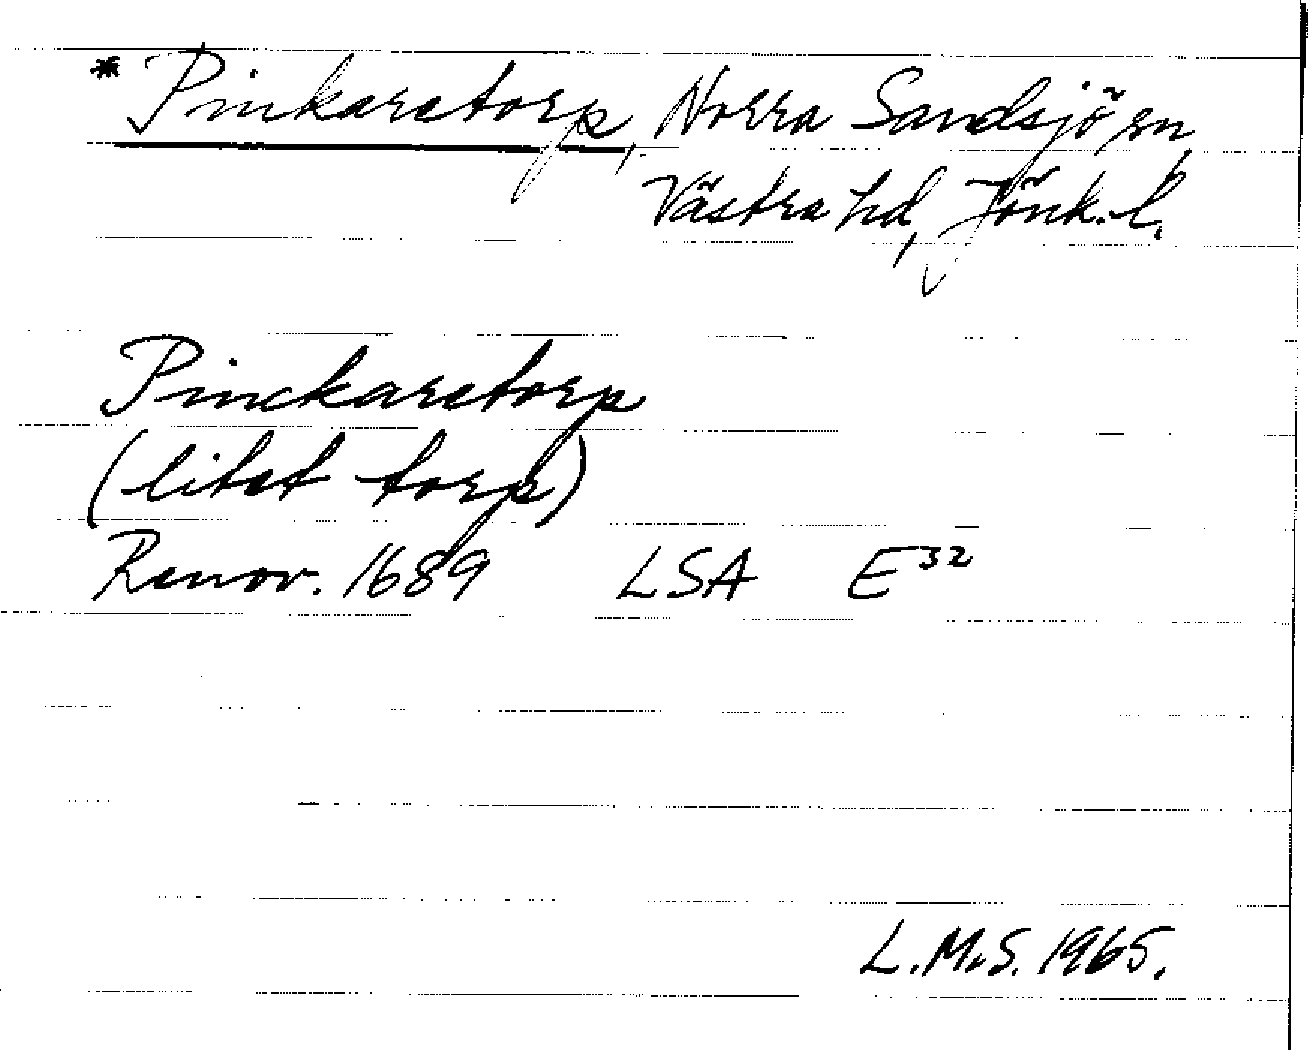 * Pinkaretorp, Norra Sandsjö sn,
Västra hd, Jönk. l.
Pinckaretorp
(litet torp)
Renov. 1689 LSA E32
L.M.S. 1965.